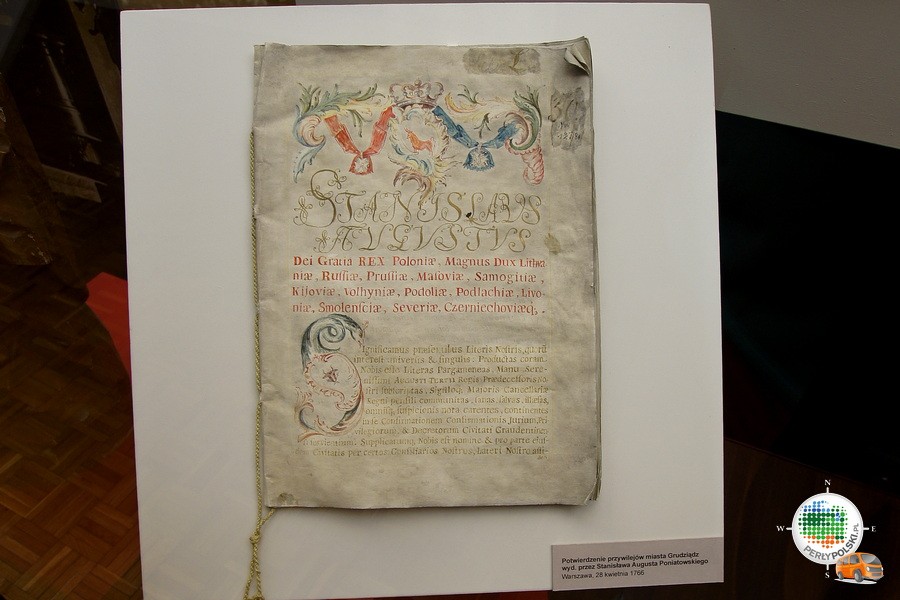 STANISLAUS
AUGUSTUS
Dei Gratia REX Poloniæ, Magnus Dux Lithua
niæ, Ruſſiæ, Pruſſiæ, Maſoviæ, Samogitiæ,
Kijoviæ, Volhyniæ, Podoliæ, Podlachiæ, Livo-
niæ, Smolenſciæ, Severiæ, Czerniechoviæq.
Significamus præsentibus Literis Noſtris, quorum
intereſt univerſis & ſingulis: Productas coram
Nobis eſſe Literas Pargameneas, Manu Sere-
niſſimi AUGUSTI TERTII Regis Prædeceſſoris No
ſtri ſubſcriptas, Sigilloq Maioris Cancellariæ
Regni penſili communitas, ſanas, ſalvas, illæſas,
omniq ſuſpicionis nota carentes, continentes
in ſe Confirmationem Confirmationis Jurium, Pri
vilegiorum, & Decretorum Civitati Graudentinen
ſi ſervientium. Supplicatumq Nobis eſt nomine & pro parte ejus-
Civitatis per certos Conſiliarios Noſtros, lateri Noſtro aſſi-
Potwierdzenie przywilejów miasta Grudziądz
wyd. przez Stanisława Augusta Poniatowskiego
Warszawa, 28 kwietnia 1766
N
W E
PERLYPOLSKI.PL
S